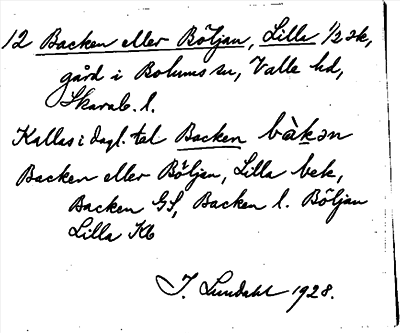 12 Backen eller Böljan, Lilla 1/2 sk,
gård i Bolums sn, Valle hd,
Skarab. l.
Kallas i dagl. tal Backen bàkən
Backen eller Böljan, Lilla bek,
Backen GS, Backen l. Böljan
Lilla Kb
I. Lundahl 1928.